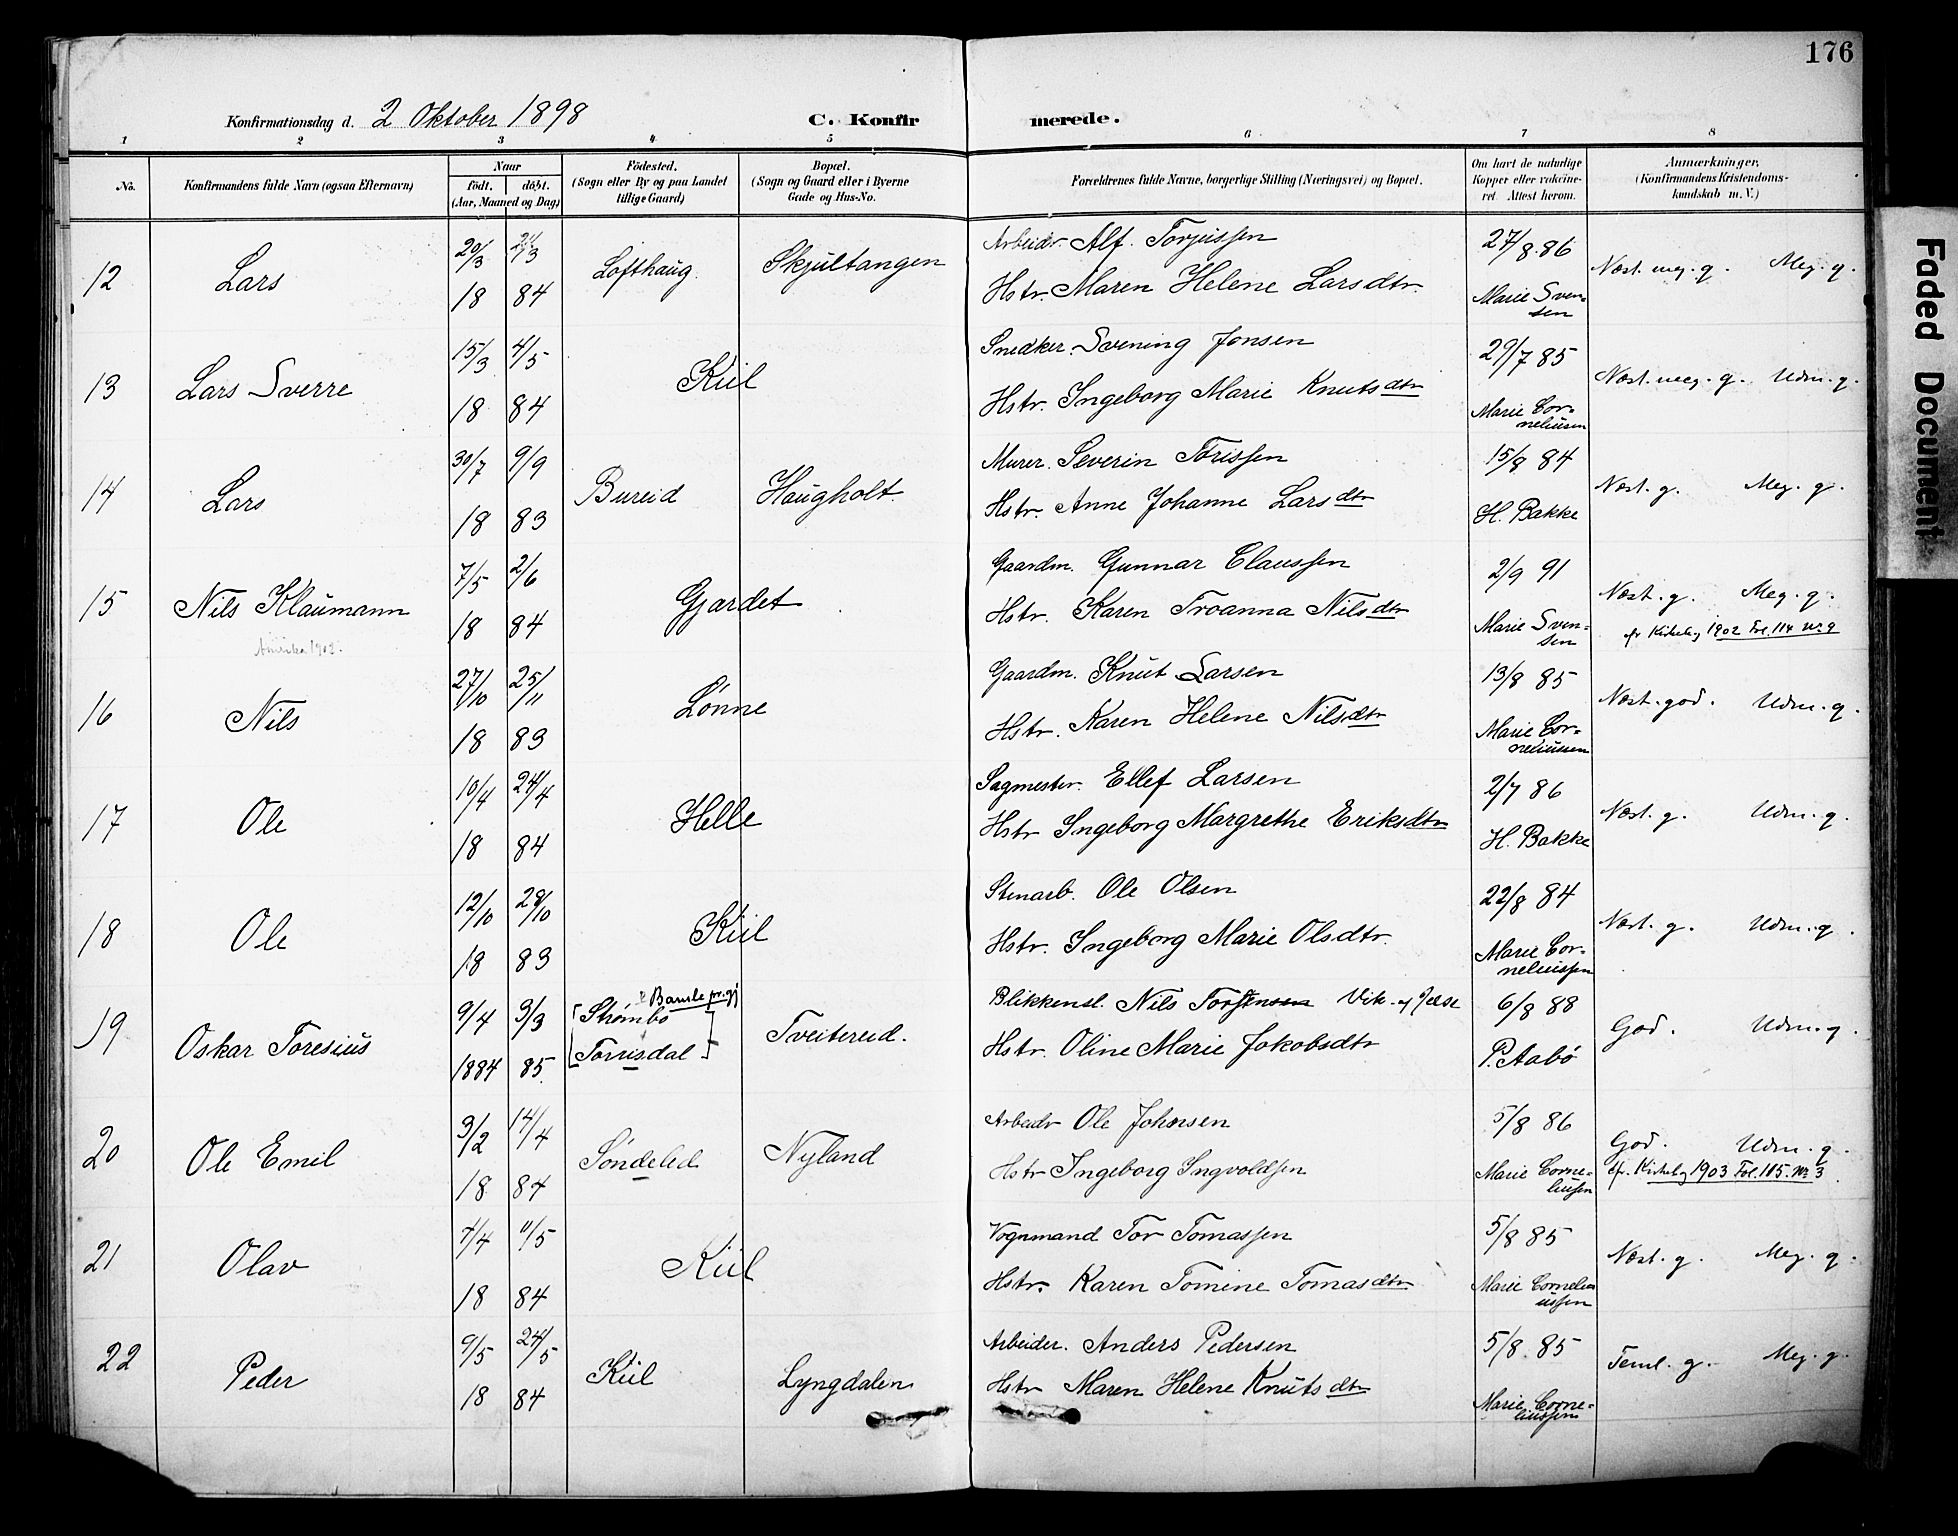 176
Konfirmationsdag d. 2 Oktober 1898 C. Konfirmerede.
1 2 3 4 5 6 7 8
No. Konfirmandens fulde Navn (ogsaa Efternavn) Naar født. døbt. (Aar, Maaned og Dag) Fødested. (Sogn eller By og paa Landet tillige Gaard) Bopæl. (Sogn og Gaard eller i Byerne Gade og Hus-No. Forældrenes fulde Navne, borgerlige Stilling (Næringsvei) og Bopæl. Om havt de naturlige Kopper eller vaccineret. Attest herom. Anmærkninger, (Konfirmandens Kristendomskundskab m. V.)
12 Lars 20/3 /3 18 84 Lofthaug Skjultangen Arbeidr Alf Torjussen 27/8 86 Næst. meg. g. Meg. g.
Hstr. Maren Helene Larsdtr. Marie Svensen
13 Lars Sverre 15/3 4/5 18 84 Kiil Snedker. Svening Jonsen 29/7 85 Næst. meg. g. Udm. g.
Hstr. Ingeborg Marie Knutsdtr Marie Corneliusen
14 Lars 30/7 9/9 18 83 Bureid Haugholt Murer. Severin Torissen 15/8 84 Næst. g. Meg. g.
Hstr. Anne Johanne Larsdtr H. Bakke
15 Nils Klaumann 7/5 2/6 18 84 Gjardet Gaardm. Gunnar Claussen 2/9 91 Næst. g. Meg. g.
Amerika 1903. Hstr. Karen Troanna Nilsdtr Marie Svensen cfr Kirkebog 1902 Fol. 114 Nr 9
16 Nils 27/10 25/11 18 83 Lønne Gaardm. Knut Larsen 13/8 85 Næst. god. Udm. g.
Hstr. Karen Helene Nilsdtr Marie Corneliussen
17 Ole 10/4 24/4 18 84 Helle Sagmester. Ellef Larsen 2/7 86 Næst. g. Udm. g.
Hstr Ingeborg Margrethe Eriksdtr H. Bakke
18 Ole 12/10 28/10 18 83 Kiil Stenarb. Ole Olsen 22/8 84 Næst. g. Udm. g.
Hstr. Ingeborg Marie Olsdtr. Marie Corneliussen
19 Oskar Toresius 9/4 3/3 1884 85. [Strømbo Bamle pr.gj Torrisdal] Tveitereid. Blikkensl. Nils Torjensen Vik 6/8 88 God. Udm. g.
Hstr. Oline Marie Jakobsdtr P. Aabø
20 Ole Emil 3/2 14/4 18 84 Søndeled Nyland Arbeidr Ole Johnsen 5/8 86 God. Udm. g.
Hstr Ingeborg Ingvoldsen Marie Corneliussen cfr. Kirkebog 1903 Fol. 115. Nr 3
21 Olav 7/4 11/5 18 84 Kiil Vognmand Tor Tomassen 5/8 85 Næst. g. Meg. g.
Hstr. Karen Tomine Tomasdtr Marie Corneliussen
22 Peder 9/5 24/5 18 84 Kiil Lyngdalen Arbeider. Anders Pedersen 5/8 85 Teml. g. Meg. g.
Hstr Maren Helene Knutsdtr Marie Corneliussen
Faded Document